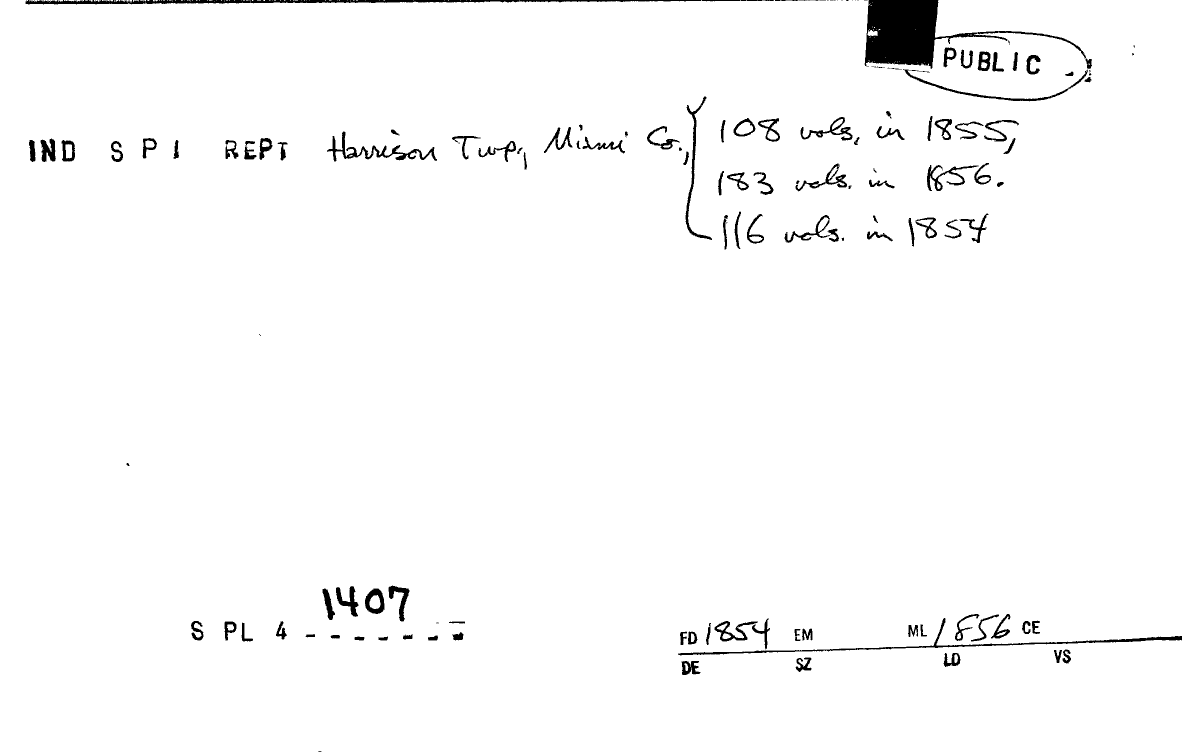 PUBLIC
IND S P I REPT Harrison Twp, Miami Co., 108 vols, in 1855,
183 vols. in 1856.
116 vols. in 1854
1407
S PL 4 - - - - - - -
FD 1854 EM ML 1856 CE
DE SZ LD VS